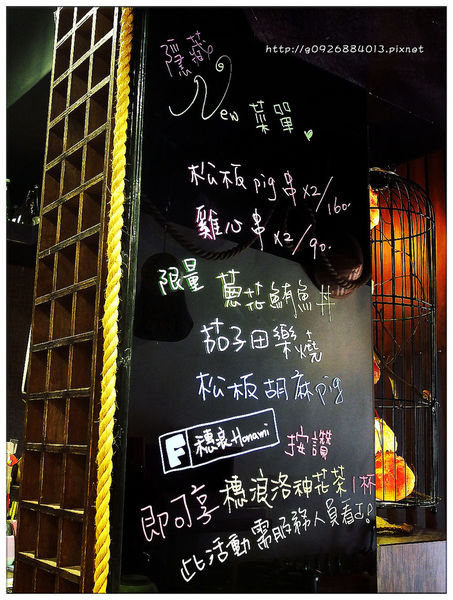 http://g0926884013.pixnet
隱藏
New 菜單
松板pig串x2/160.
雞心串x2/90.
限量 蔥花鮪魚丼
茄子田樂燒
松板胡麻pig
F 穗浪Honami 按讚
即可享穗浪洛神花茶1杯
此活動需服務人員看過!